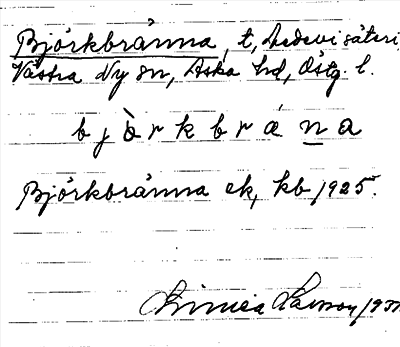 Björkbränna, t, Medevi säteri,
Västra Ny sn, Aska hd, Östg. l.
b j ö̀ r k b r á n a
Björkbränna ek, kb 1925.
Linnea Larsson